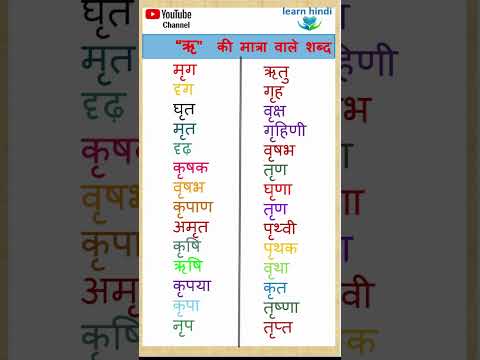 YouTube
Channel
learn hindi
"ऋ" की मात्रा वाले शब्द
मृग
दृग
घृत
मृत
दृढ़
कृषक
वृषभ
कृपाण
अमृत
कृषि
ऋषि
कृपया
कृपा
नृप
ऋतु
गृह
वृक्ष
गृहिणी
वृषभ
तृण
घृणा
तृण
पृथ्वी
पृथक
वृथा
कृत
तृष्णा
तृप्त